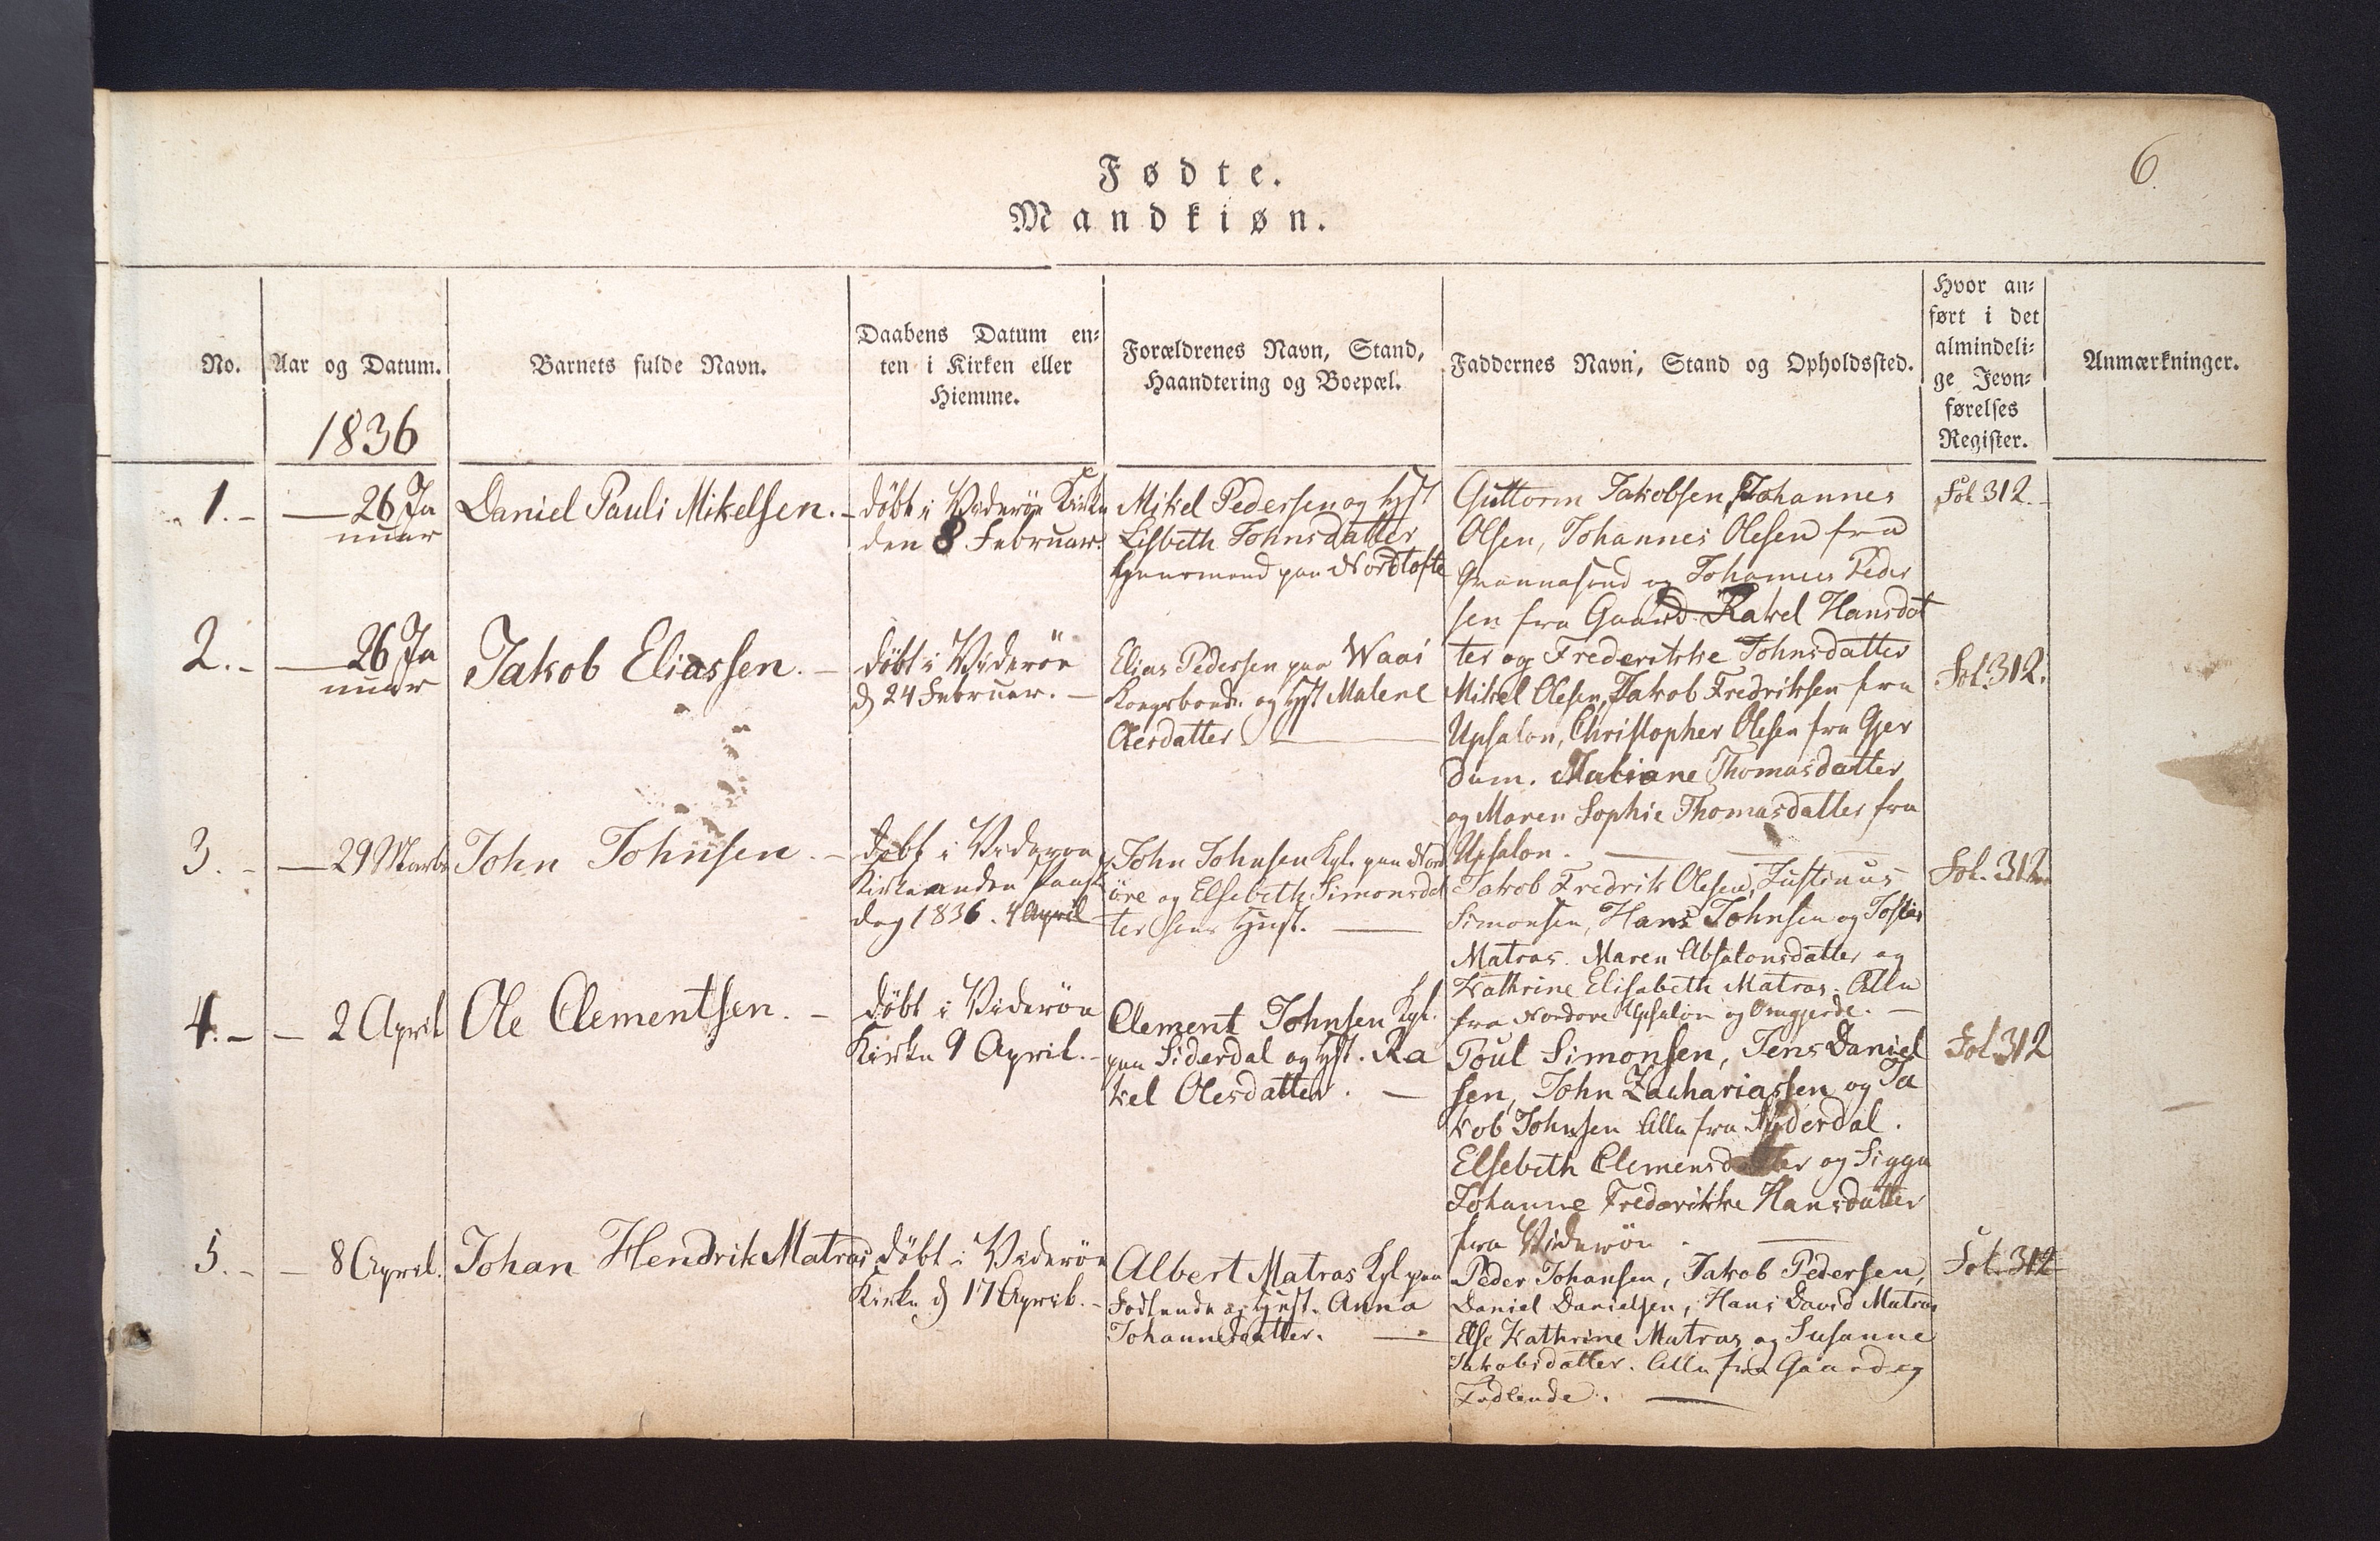 6.
Fødte.
Mandkiøn.
No.
Aar og Datum.
Barnets fulde Navn.
Daabens Datum en-
ten i Kirken eller
Hiemme.
Forældrenes Navn, Stand,
Haandtering og Boepæl.
Faddernes Navn, Stand og Opholdssted.
Hvor an-
ført i det
almindeli-
ge Jevn-
førelses
Register.
Anmærkninger.
1836
1.-
26 Ja
nuar
Daniel Pauli Mikelsen.
Döbt i Videröe Kirke
den 8 Februar.
Mikel Pedersen og
Lisbeth Johnsdatter
paa Nordtofte
Guttorm Jakobsen, Johannes
Olsen, Johannes Olesen fra
og Johannes Peder
sen fra Gaard Rakel Hansdat
ter og Frederikke Johnsdatter
Fol 312.
2.-
26 Ja
nuar
Jakob Eliassen.
Döbt i Videröe
d 24 Februar.
Elias Pedersen paa Waai
Kongsbonde og Malene
Olesdatter
Mikel Olesen, Jakob Fredriksen fra
Upsalon, Christopher Olesen fra Gjer
dum. Mariane Thomasdatter
og Maren Sophie Thomasdatter fra
Upsalon.
Fol. 312.
3.
29 Marts
John Johnsen
Döbt i Videröe
Kirke anden Paaske
dag 1836. 4 April
John Johnsen Kgl. paa Nord
öre og Elsebeth Simonsdat
ter
Jakob Fredrik Olesen, Justinus
Simonsen, Hans Johnsen og
Matras. Maren Absalonsdatter og
Kathrine Elisabeth Matras. Alle
fra Nordöre Upsalon og Omgjerde.
Fol. 312.
4.-
2 April
Ole Clementsen.
Döbt i Videröe
Kirke 9 April.
Clement Johnsen Kgl.
paa Siderdal og Ra
kel Olesdatter.
Poul Simonsen, Jens Daniel
sen, John Zachariassen og Ja
kob Johnsen Alle fra Syderdal.
Elsebeth Clemensdatter og Sigga
Johanne Frederikke Hansdatter
fra Videröe.
Fol 312
5.
8 April.
Johan Hendrik Matras
Döbt i Videröe
Kirke d 17 April.
Albert Matras Kgl paa
og Anna
Johannesdatter.
Peder Johansen, Jakob Pedersen,
Daniel Danielsen, Hans David Matras
Else Kathrine Matras og Susanne
Jakobsdatter. Alle fra Gaard og
Fodlende.
Fol. 312